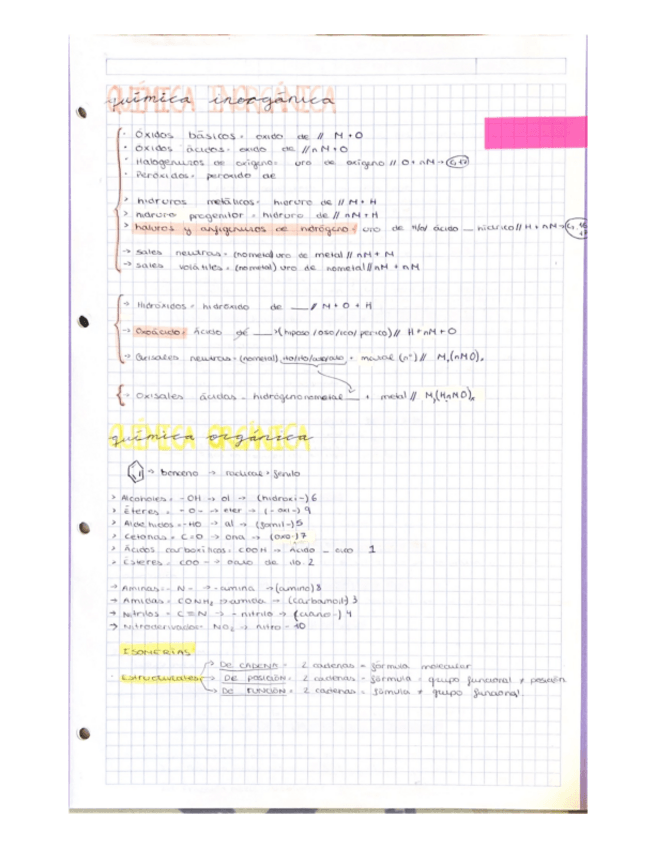 química inorgánica
· Óxidos básicos = oxido de // M + O
· Óxidos ácidos = oxido de // nM + O
· Halogenuros de oxígeno = uro de oxígeno // O + nM →
· Peróxidos = peroxido de
> hidruros metálicos = hidruro de // M + H
> hidruro progenitor = hidruro de // nM + H
> haluros y anfigenuros de hidrógeno = uro de H/o/ ácido __ hídrico // H + nM →
→ sales neutras = (nometal) uro de metal // nM + M
→ sales volátiles = (nometal) uro de nometal // nM + nM
→ Hidróxidos = hidróxido de __ // M + O + H
→ Oxoácido = ácido __ (hiposo / oso / ico / perico) // H + nM + O
→ Oxisales neutras = (nometal) + metal (nº) // Mₓ(nMO)ₓ
→ Oxisales ácidas - hidrógeno nometal __ + metal // (HnMO)
química orgánica
→ benceno → radical = fenilo
> Alcoholes = -OH → ol → (hidroxi-) 6
> Éteres = -O- → eter → (-oxi-) 9
> Aldehidos = -HO → al → (formil-) 5
> Cetonas = C=O → ona → (oxo-) 7
> Ácidos carboxílicos = COOH → Ácido - oico 1
> Ésteres = COO - → de ilo 2
→ Aminas = - N - → -amina → (amino) 8
→ Amidas = CONH₂ → amida → (carbamoil) 3
→ Nitrilos = C≡N → - nitrilo → (ciano-) 4
→ Nitroderivados = NO₂ → nitro - 10
ISOMERIAS
→ DE CADENA = 2 cadenas = fórmula molecular
Estructurales → DE POSICIÓN = 2 cadenas = fórmula = grupo funcional ≠ posición
→ DE FUNCIÓN = 2 cadenas = fórmula ≠ grupo funcional